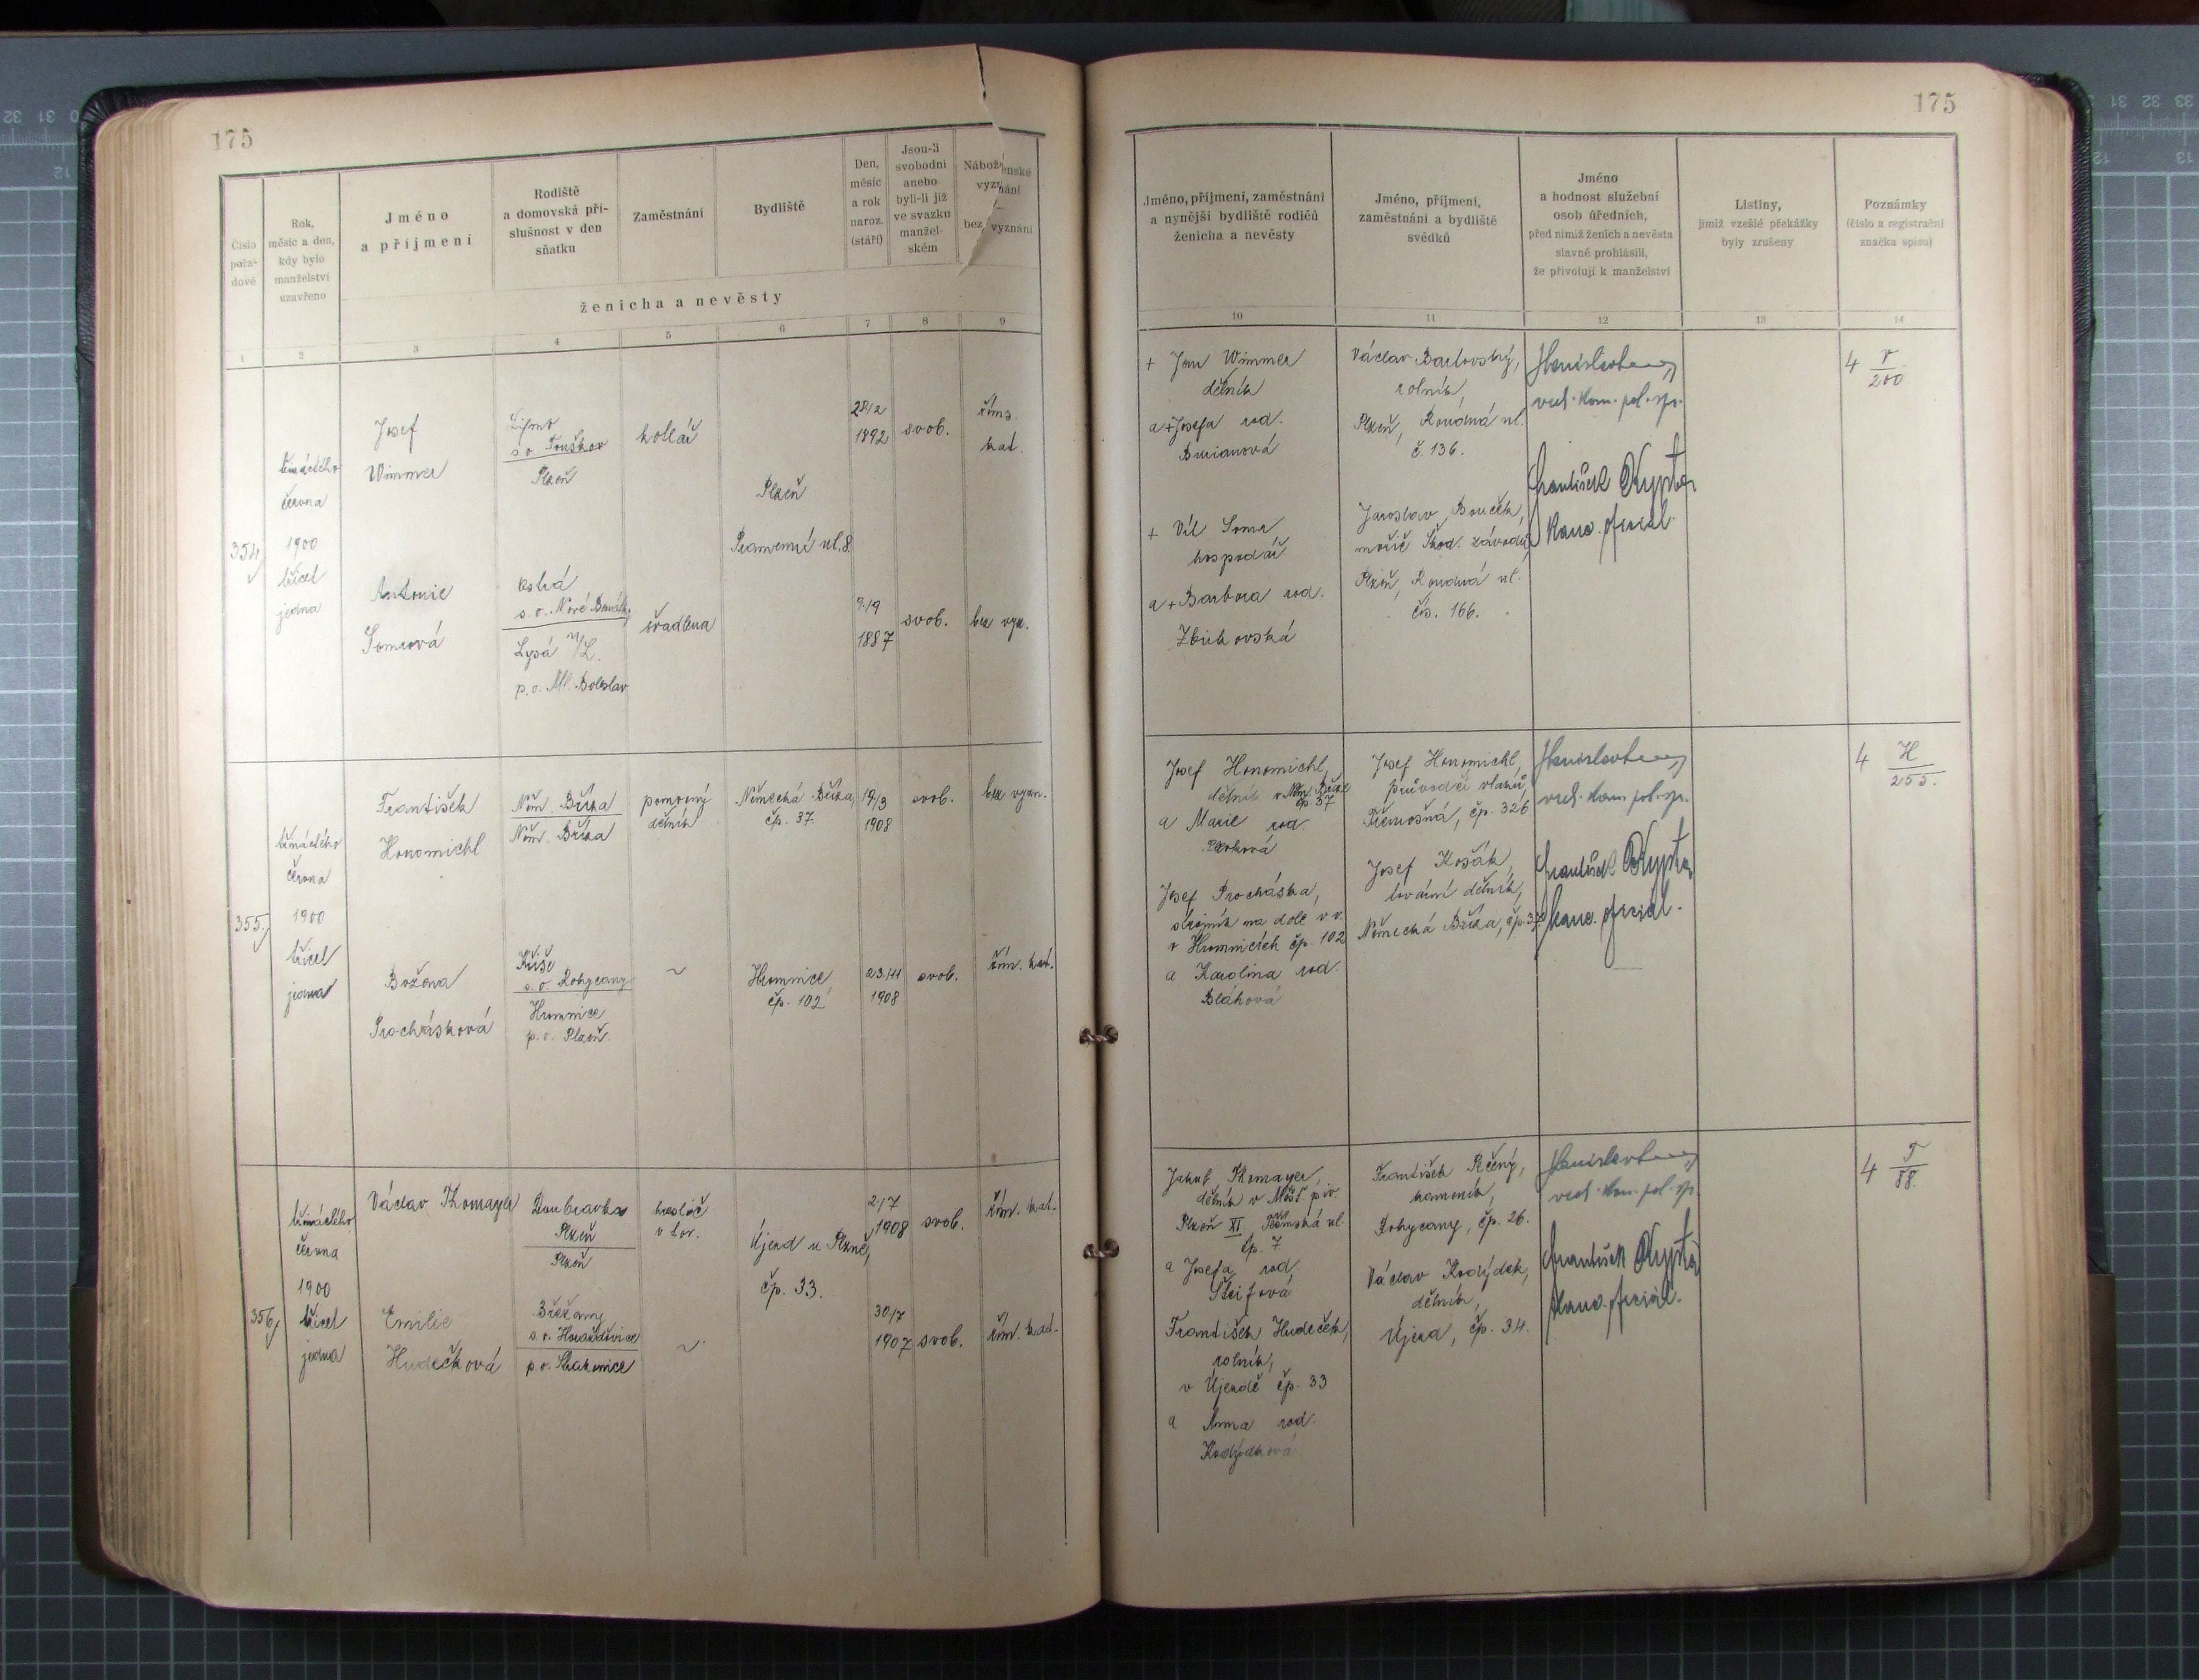 175
175
Číslo
pořa-
dové
Rok,
měsíc a den,
kdy bylo
manželství
uzavřeno
Jméno
a příjmení
Rodiště
a domovská pří-
slušnost v den
sňatku
Zaměstnání
Bydliště
Den,
měsíc
a rok
naroz.
(stáří)
Jsou-li
svobodni
anebo
byli-li již
ve svazku
manžel-
ském
Náboženské
vyznání
—
bez vyznání
ženicha a nevěsty
1
2
3
4
5
6
7
8
9
354
třináctého
června
1900
třicet
jedna
Josef
Wimmer
s. o. Touškov
Plzeň
kotlář
Plzeň
Pramenní ul. 8.
28/2
1892
svob.
řím.
kat.
Antonie
Somrová
s. o. Nové Benátky
Lysá n/L.
p. o. Ml. Boleslav
švadlena
9/9
1887
svob.
bez vyzn.
355
třináctého
června
1900
třicet
jedna
František
Honomichl
Něm. Bříza
Něm. Bříza
pomocný
dělník
Německá Bříza,
čp. 37.
19/3
1908
svob.
bez vyzn.
Božena
Procházková
s. o. Rokycany
Hromnice
p. o. Plzeň.
~
Hromnice,
čp. 102
23/11
1908
svob.
řím. kat.
356
třináctého
června
1900
třicet
jedna
Václav Thomayer
Doubravka
Plzeň
Plzeň
v tov.
Újezd u Plzně,
čp. 33.
2/7
1908
svob.
řím. kat.
Emilie
Hudečková
Břežany
s. o. Horažďovice
p. o. Strakonice
~
30/7
1907
svob.
řím. kat.
Jméno, příjmení, zaměstnání
a nynější bydliště rodičů
ženicha a nevěsty
Jméno, příjmení,
zaměstnání a bydliště
svědků
Jméno
a hodnost služební
osob úředních,
před nimiž ženich a nevěsta
slavně prohlásili,
že přivolují k manželství
Listiny,
jimiž vzešlé překážky
byly zrušeny
Poznámky
(číslo a registrační
značka spisu)
10
11
12
13
14
+ Jan Wimmer
dělník
a + Josefa roz.
Burianová
+ Vil. Somr
hospodář
a + Barbora roz.
Václav Bartovský,
rolník,
Plzeň, Roudná ul.
č. 136.
Jaroslav Bouček,
Škod. závodů
Plzeň, Roudná ul.
čís. 166.
vrch. kom. pol. spr.
František Krypta
kanc. oficiál.
4 V
200
Josef Honomichl,
dělník v Něm. Bříze
čp. 37
a Marie roz.
Josef Procházka,
strojník na dole v v.
v Hromnicích čp. 102
a Karolina roz.
Bláhová
Josef Honomichl,
průvodčí vlaků,
Třemošná, čp. 326
Josef Košák,
tovární dělník,
Německá Bříza, čp. 37
vrch. kom. pol. spr.
František Krypta
kanc. oficiál.
4 H
255.
Jakub Thomayer,
dělník v Měšť. piv.
Plzeň XI ul.
čp. 7
a Josefa roz.
František Hudeček,
rolník,
v Újezdě čp. 33
a Anna roz.
Kodýdková
František Pečený,
kameník,
Rokycany, čp. 26.
Václav Kodýdek,
dělník,
Újezd, čp. 34.
vrch. kom. pol. spr.
František Krypta
kanc. oficiál.
4 T
88.